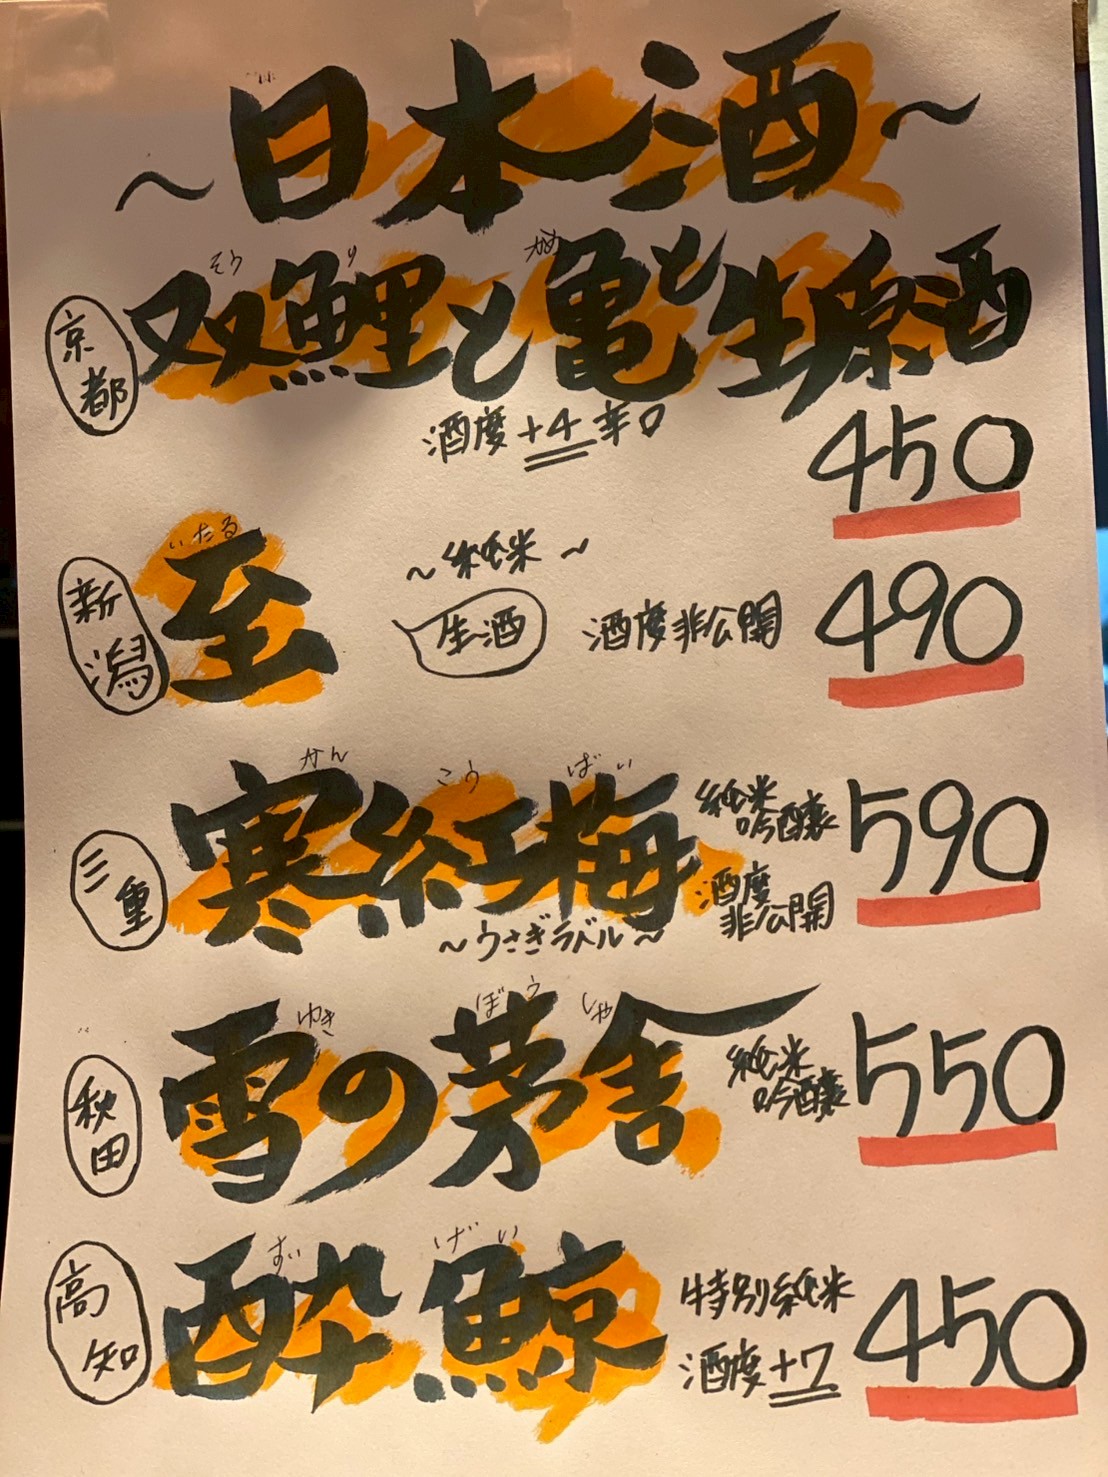 ～日本酒～
そう り かめ
京都 双鯉と亀と生原酒
酒度+4 辛口
450
いたる
新潟 至 ～純米～ 生酒 酒度非公開 490
かん こう ばい
三重 寒紅梅 純米吟醸 酒度非公開 590
～うさぎラベル～
ゆき ぼう しゃ
秋田 雪の茅舎 純米吟醸 550
すい げい
高知 酔鯨 特別純米 酒度+7 450